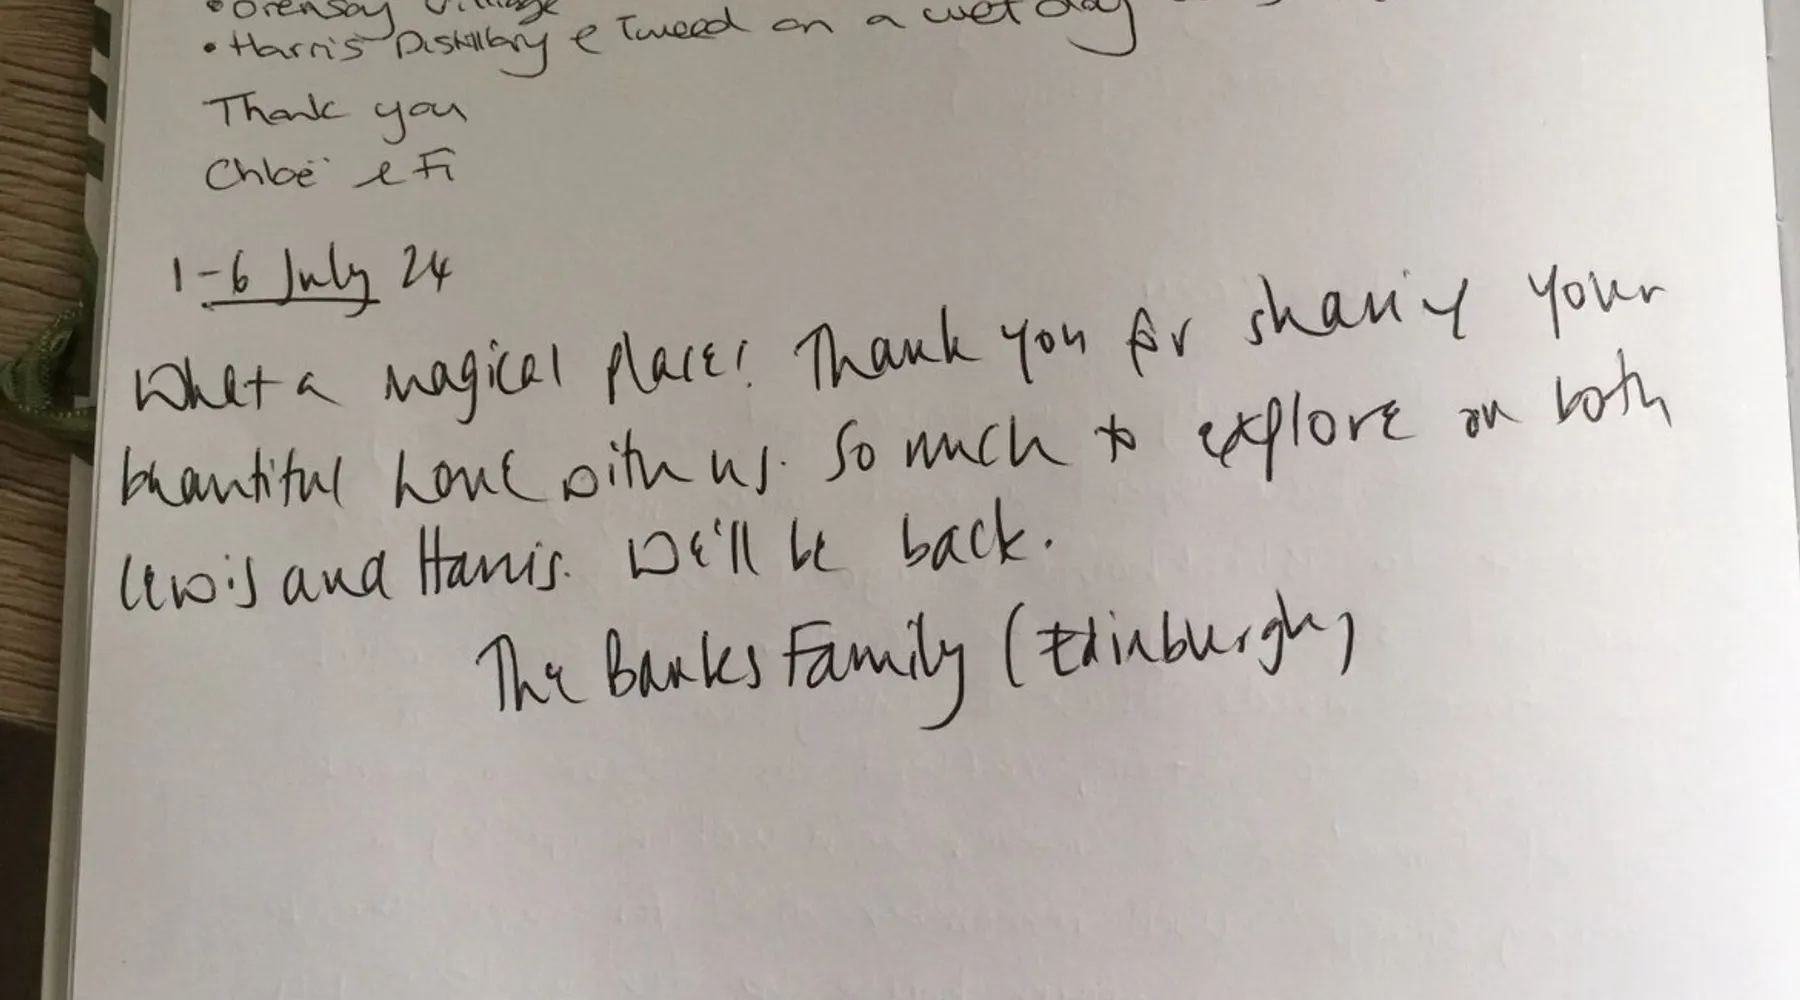 • Orensay Village
• Harris Distillery & Tweed on a wet day
Thank you
Chloë & Fi
1-6 July 24
What a magical place! Thank you for sharing your
beautiful home with us. So much to explore on both
Lewis and Harris. We'll be back.
The Banks Family (Edinburgh)